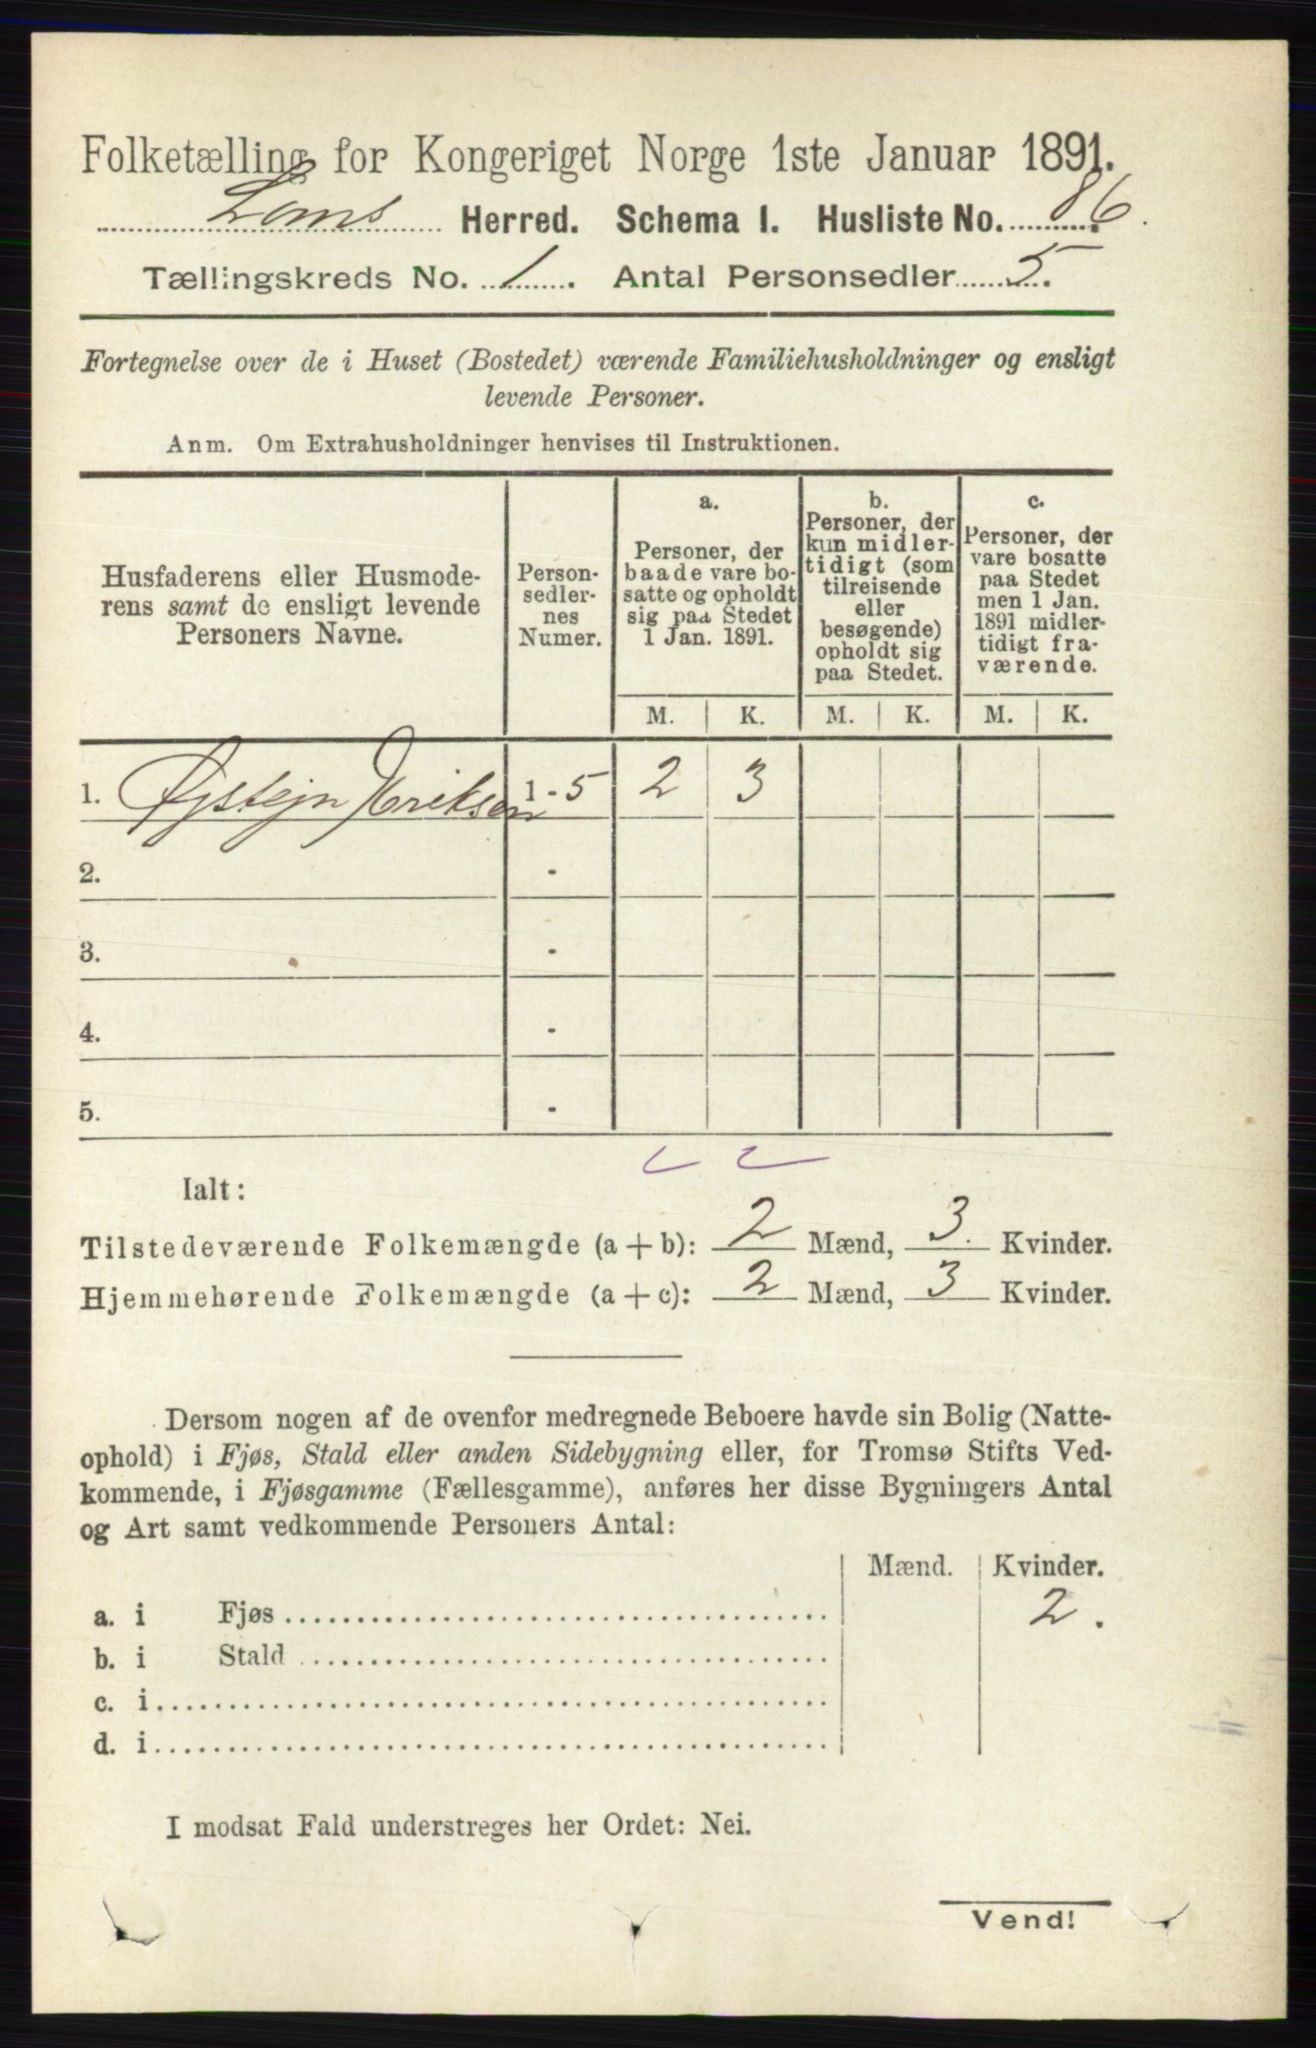 Folketælling for Kongeriget Norge 1ste Januar 1891.
Loms Herred. Schema I. Husliste No. 86.
Tællingskreds No. 1. Antal Personsedler 5.
Fortegnelse over de i Huset (Bostedet) værende Familiehusholdninger og ensligt
levende Personer.
Anm. Om Extrahusholdninger henvises til Instruktionen.
Husfaderens eller Husmode-
rens samt de ensligt levende
Personers Navne.
Person-
sedler-
nes
Numer.
a.
Personer, der
baade vare bo-
satte og opholdt
sig paa Stedet
1 Jan. 1891.
b.
Personer, der
kun midler-
tidigt (som
tilreisende
eller
besøgende)
opholdt sig
paa Stedet.
c.
Personer, der
vare bosatte
paa Stedet
men 1 Jan.
1891 midler-
tidigt fra-
værende.
M. K. M. K. M. K.
1. Øjstejn Eriksen 1 - 5 2 3
2. -
3. -
4. -
5. -
Ialt:
Tilstedeværende Folkemængde (a + b): 2 Mænd, 3. Kvinder.
Hjemmehørende Folkemængde (a + c): 2 Mænd, 3 Kvinder.
Dersom nogen af de ovenfor medregnede Beboere havde sin Bolig (Natte-
ophold) i Fjøs, Stald eller anden Sidebygning eller, for Tromsø Stifts Ved-
kommende, i Fjøsgamme (Fællesgamme), anføres her disse Bygningers Antal
og Art samt vedkommende Personers Antal:
Mænd. Kvinder.
a. i Fjøs 2.
b. i Stald
c. i
d. i
I modsat Fald understreges her Ordet: Nei.
Vend!